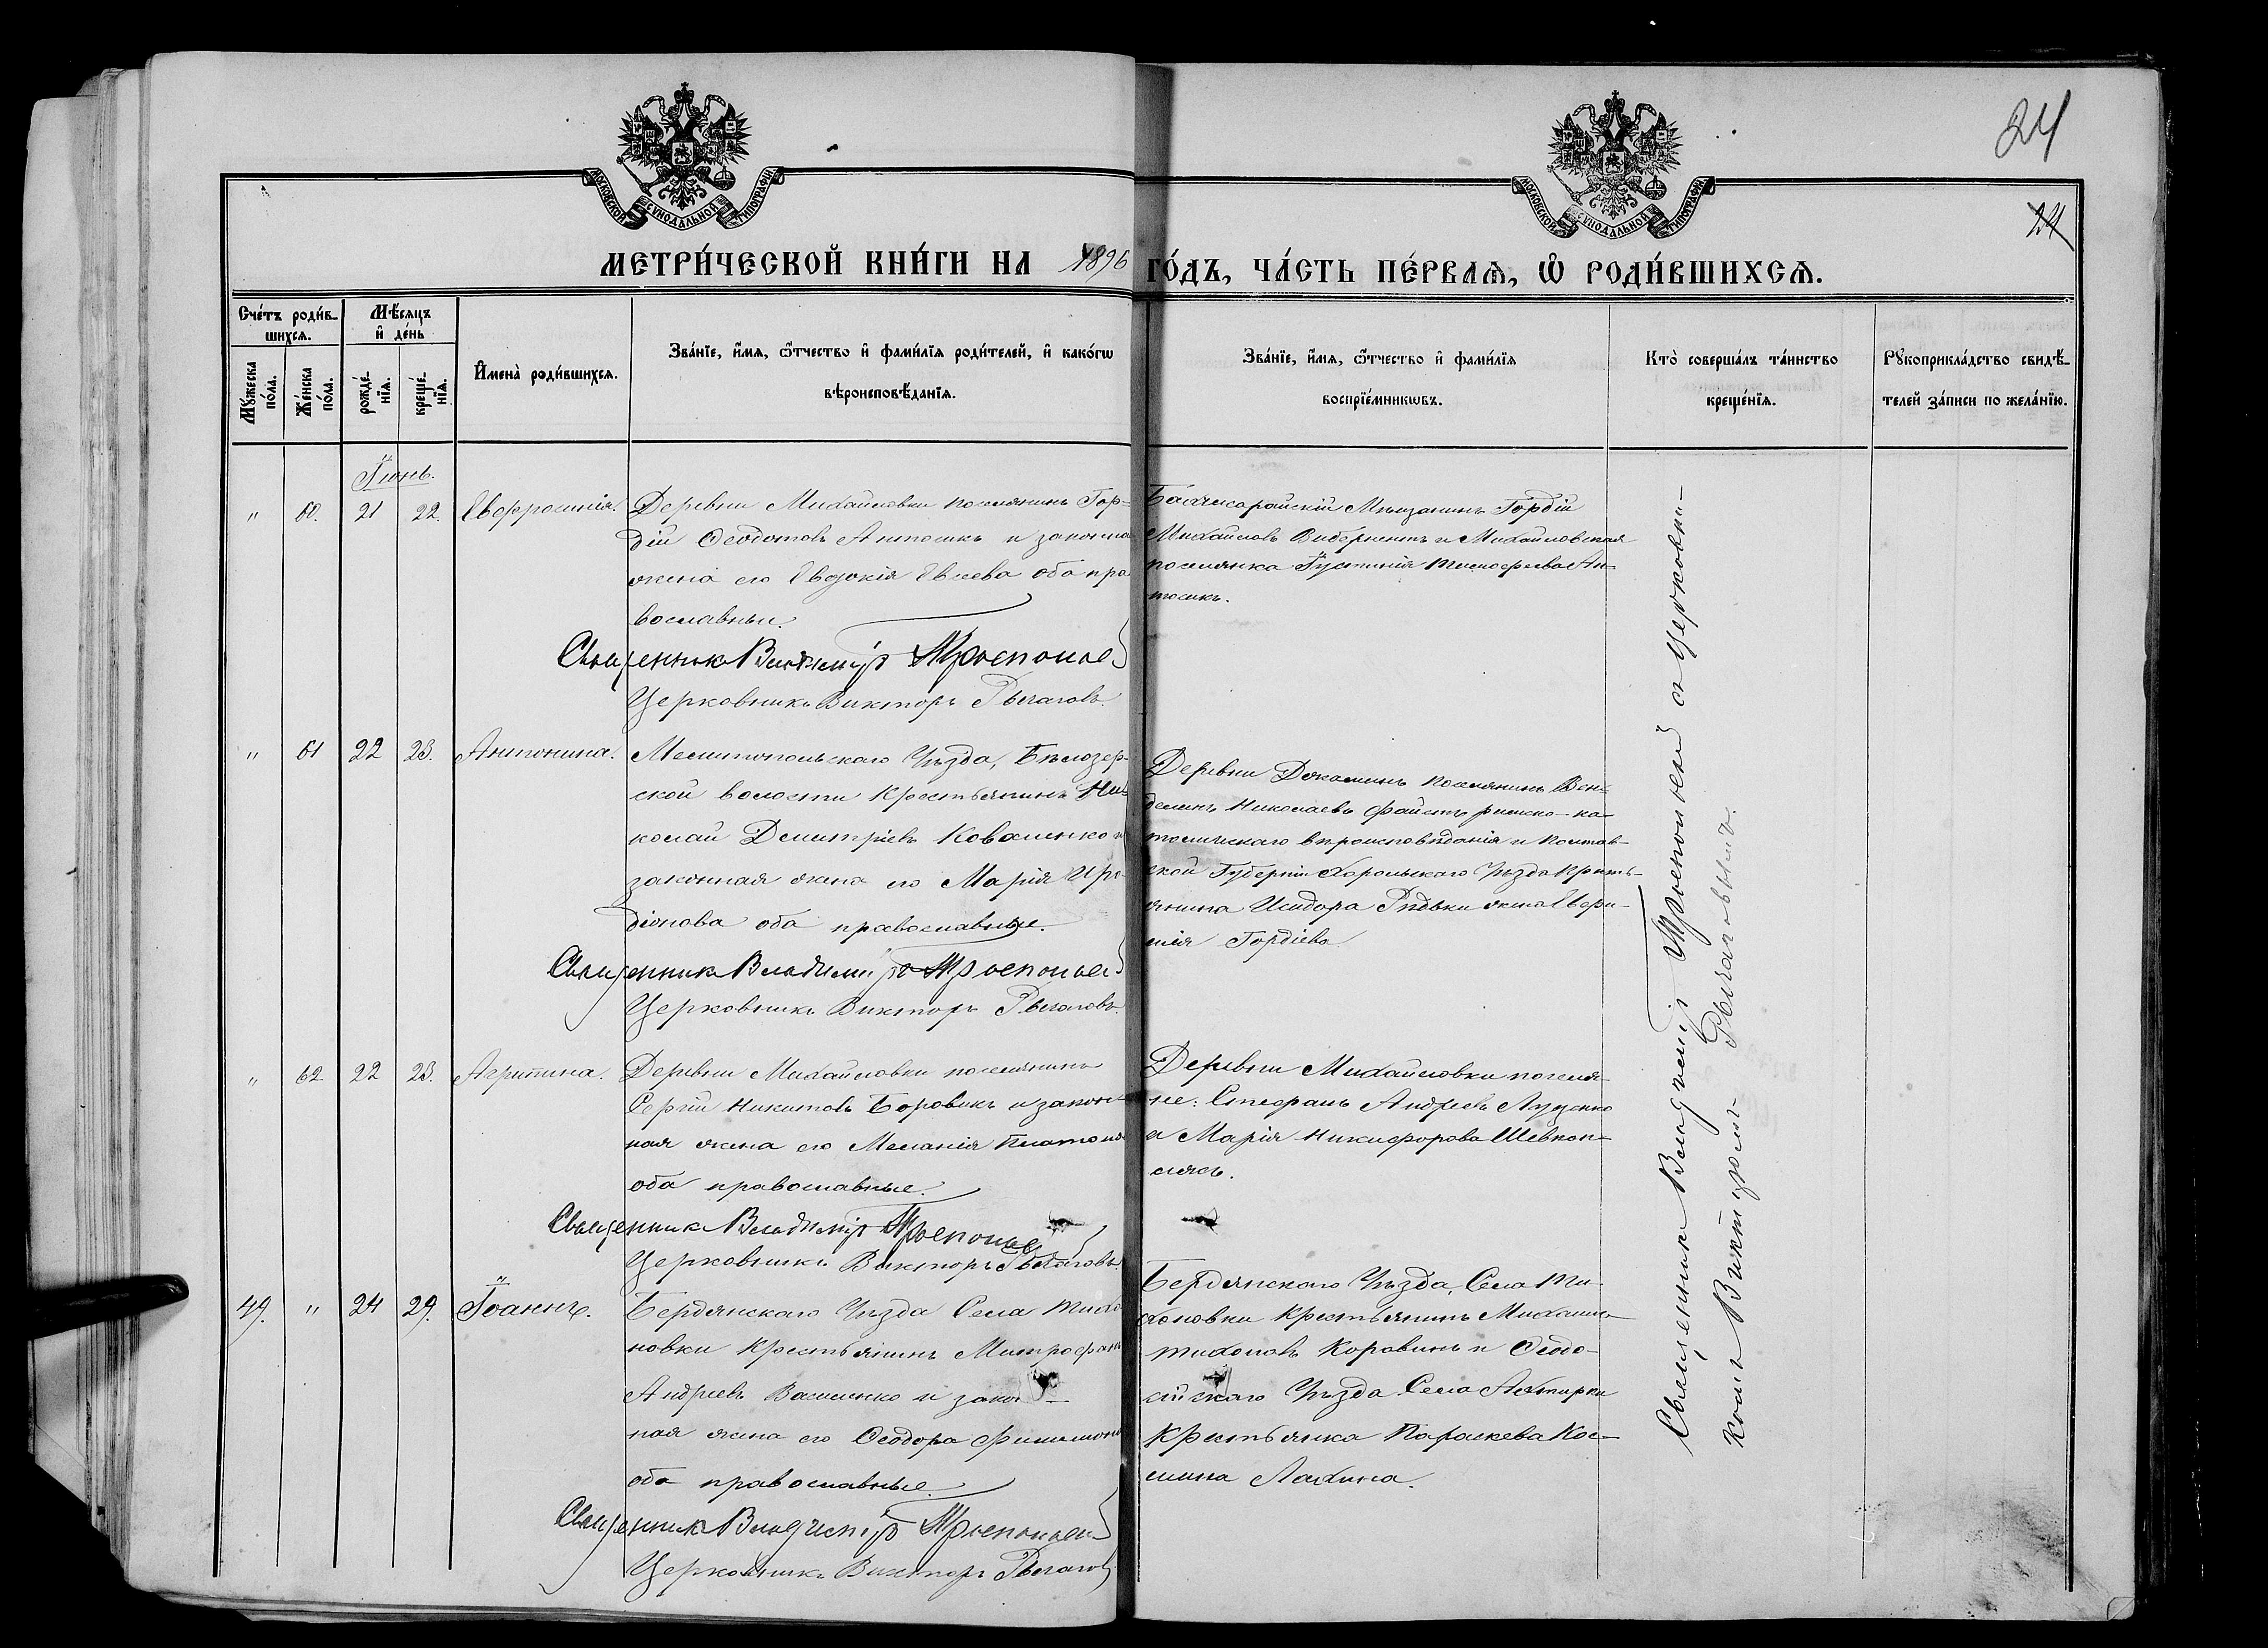 МОСКОВСКОЙ СѴНОДАЛЬНОЙ ТИПОГРАФІИ
МОСКОВСКОЙ СѴНОДАЛЬНОЙ ТИПОГРАФІИ
24
24
МЕТРИ́ЧЕСКОЙ КНИ́ГИ НА 1896 ГО́ДЪ, ЧА́СТЬ ПЕ́РВАѦ, Ѡ҆ РОДИ́ВШИХСѦ.
Сче́тъ роди́в-
шихсѧ.
Мꙋ́жеска по́ла.
Же́нска по́ла.
Мѣ́сѧцъ
и҆ де́нь
рожде́-нїѧ.
креще́-нїѧ.
И҆мена̀ роди́вшихсѧ.
Зва́нїе, и҆́мѧ, ѻ҆́тчество и҆ фами́лїѧ роди́телей, и҆ како́гѡ
вѣроисповѣ́данїѧ.
Зва́нїе, и҆́мѧ, ѻ҆́тчество и҆ фами́лїѧ
воспрїе́мникѡвъ.
Кто̀ соверша́лъ та́инство
креще́нїѧ.
Рꙋкоприкла́дство свидѣ́-
телей за́писи по жела́нїю.
Іюнь.
" 60. 21 22. Евфросинія.
Деревни Михайловки поселянинъ Гор-
дій Ѳеодотовъ Антосикъ и законна
жена его Евдокія Евсеева оба пра
вославныи.
Священникъ Владиміръ
Церковникъ Викторъ Рычаговъ.
Бахчисарайскій Мѣщанинъ Гордій
Михайловъ и Михайловская
поселянка Іустинія Ан-
тосикъ.
" 61 22 23. Антонина.
Мелитопольскаго Уѣзда, Бѣлозер-
ской волости крестьянинъ Ни-
колай Димитріевъ Коваленко и
законная жена его Марія Иро-
діонова оба православные.
Священникъ Владиміръ
Церковникъ Викторъ Рычаговъ.
Деревни Джаминъ поселянинъ Вен-
делинъ Николаевъ Файстъ римско-ка-
толическаго вѣроисповѣданія и Полтав-
ской Губерніи Хорольскаго Уѣзда Кресть-
янина Исидора Рѣдьки жена
Гордіева
" 62 22 23. Агрипина.
Деревни Михайловки поселянинъ
Сергій Никитовъ Боровикъ и закон-
ная жена его Меланія Платоно
оба православные.
Священникъ Владиміръ
Церковникъ Викторъ Рычаговъ.
Деревни Михайловки поселя-
не: Стефанъ Андреевъ Луценко
и Марія Никифорова Шевкоп-
лясъ.
49. " 24 29. Іоаннъ.
Бердянскаго Уѣзда Села Тихо
новки Крестьянинъ Митрофанъ
Андреевъ Василенко и закон-
ная жена его Ѳеодора Филимоно
оба православные.
Священникъ Владиміръ
Церковникъ Викторъ Рычаговъ
Бердянскаго Уѣзда, Села Ти-
хоновки Крестьянинъ Михаилъ
Тихоновъ Коровинъ и Ѳеодо-
сійскаго Уѣзда Села Ахтырки
Крестьянка Параскева Кос-
мина Лахина.
Священникъ Владиміръ съ Церковни-
комъ Викторомъ Рычаговымъ.